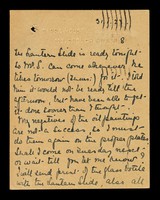 8.
The Lantern Slide is ready tonight -
so Mr S. can come whenever he
likes tomorrow for it. I told
him it would not be ready till the
afternoon, but have been able to get
it done sooner than I thought.
My negatives of the oil paintings
are not a success, so I must
do them again on the proper plates
Shall I come on Sunday next -
or wait till you let me know? I
will send print of the glass bottle
with the Lantern Slide, also all